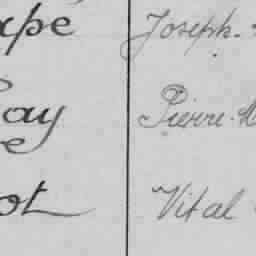 xpé Joseph.
ay Pierre. M
e
ot Vital